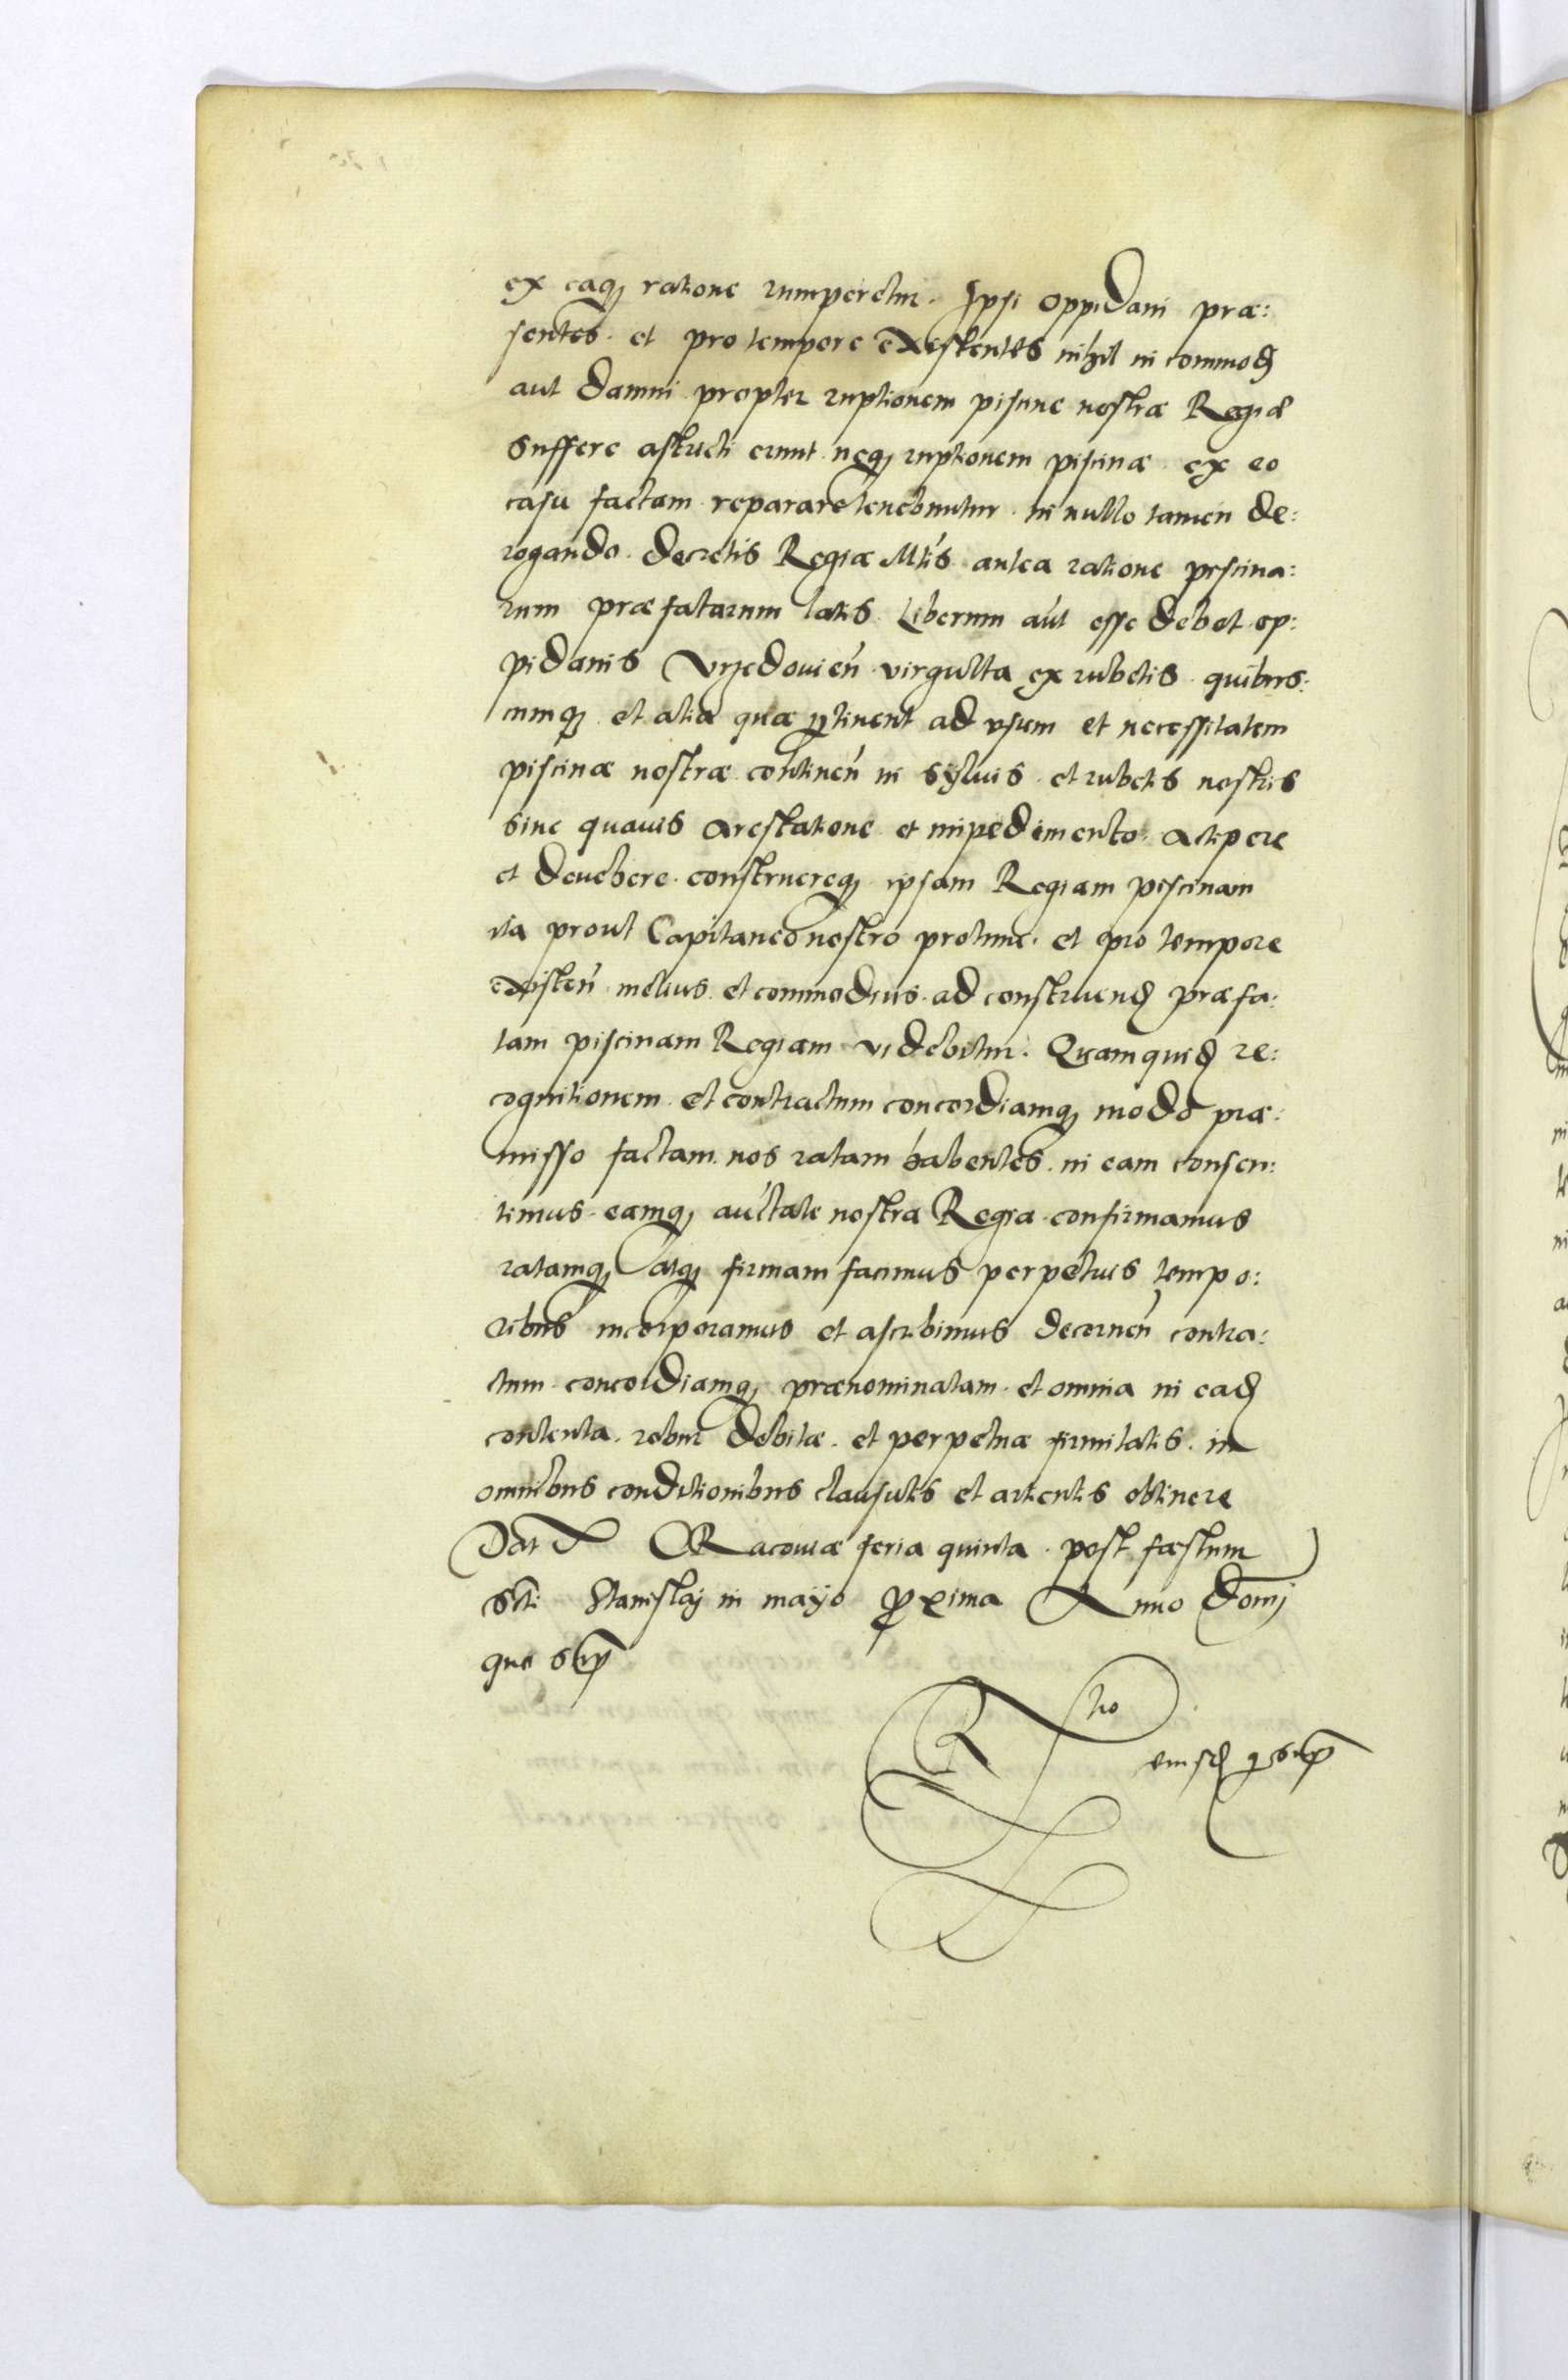 ex eaq₃ ratione rumperetur. Ipsi oppidani præ:
sentes. et pro tempore existentes nihil in commod
aut damni propter ruptionem piscine nostræ Regiæ
suffere astricti erunt neq₃ ruptionem piscinæ ex eo
casu factam reparare tenebuntur in nullo tamen de:
rogando decretis Regiæ Mtis antea ratione piscina:
rum præfatarum latis. Liberum aut esse debet op:
pidanis Vrzedouien virgulta ex rubetis quibus:
cumq₃ et alia quæ ptinent ad vsum et necessitatem
piscinæ nostræ continen in syluis et rubetis nostris
sine quauis arestatione et impedimento. accipere
et deuehere construereq₃ ipsam Regiam piscinam
ita prout Capitaneo nostro protunc. et pro tempore
existen melius et commodius ad construend præfa:
tam piscinam Regiam videbitur. Quamquid re:
cognitionem et contractum concordiamq₃ modo præ:
misso factam nos ratam habentes. in eam consen:
timus eamq₃ auctate nostra Regia confirmamus
ratamq₃ atq₃ firmam facimus perpetuis tempo:
ribus incorporamus et ascribimus decernen contra:
ctum concordiamq₃ prænominatam et omnia in ead
contenta robur debitæ et perpetuæ firmitatis. in
omnibus conditionibus clausulis et articulis obtinere
Dat Cracouiæ feria quinta post fæstum
Scti Stanislaj in mayo proxima Anno Domj
quo sup
Rtio
eiusd q sup